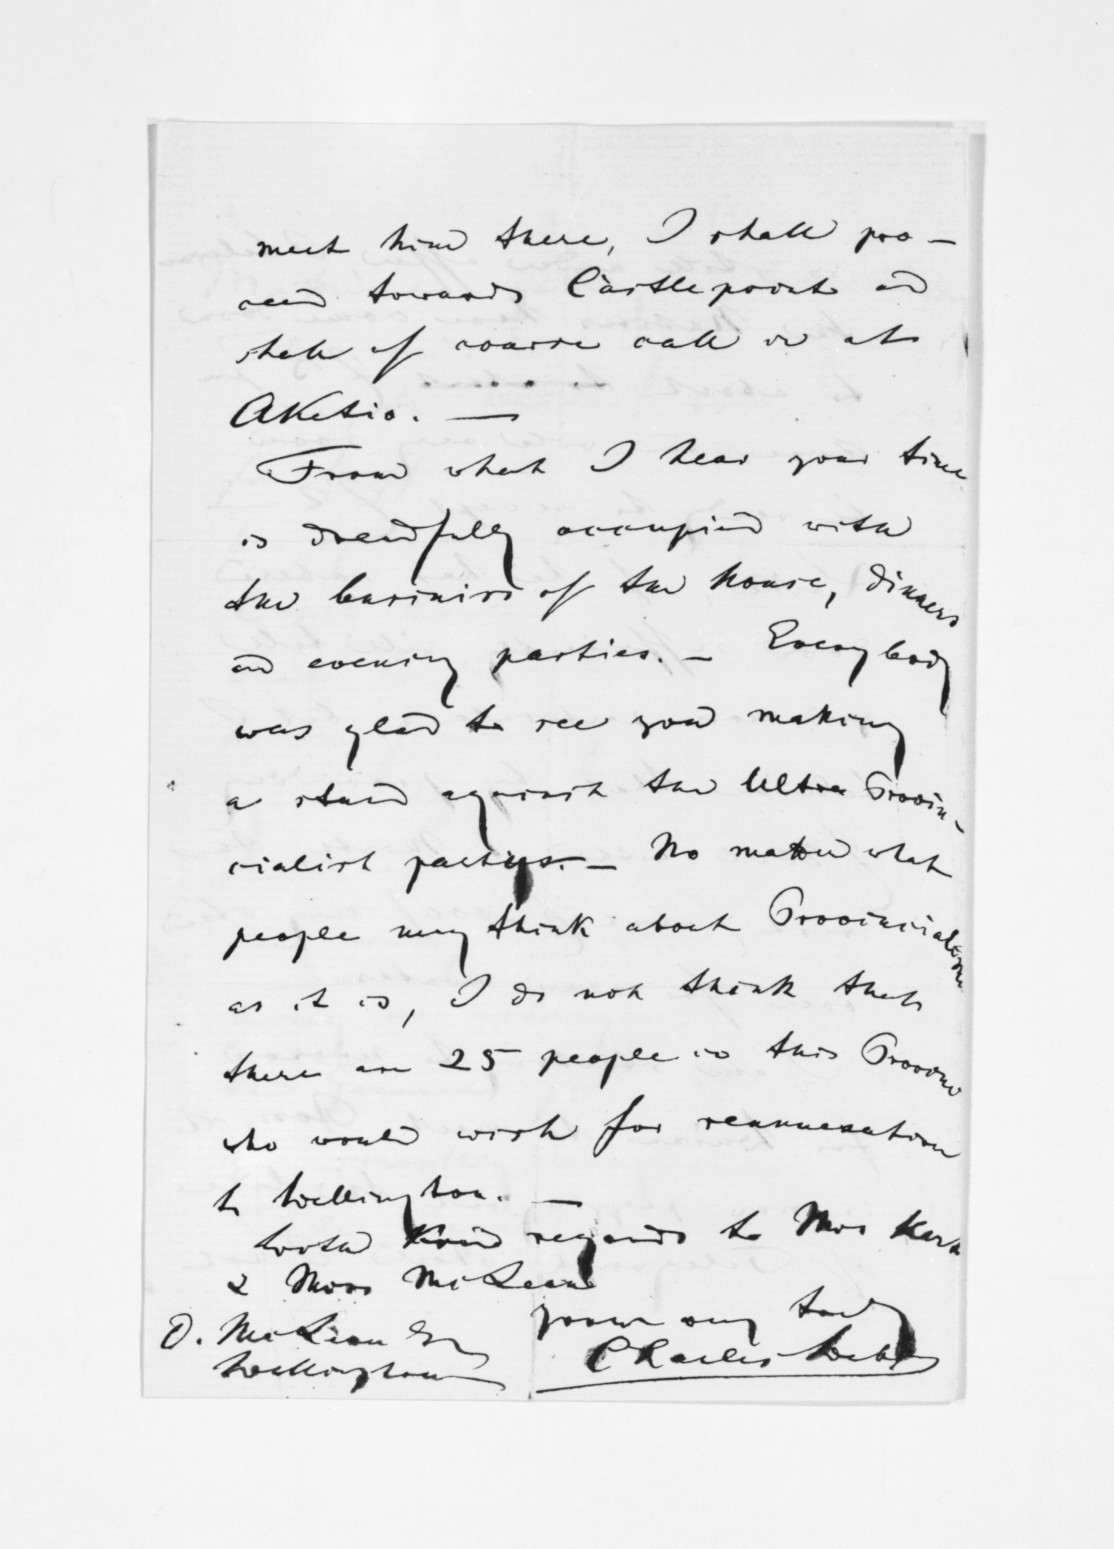 meet him there, I shall pro-
ceed towards Castlepoint and
shall of course call in at
Akitio. —
From what I hear your time
is dreadfully occupied with
the business of the house, dinners
and evening parties. — Everybody
was glad to see you making
a stand against the Ultra Provin-
cialist parties. — No matter what
people may think about Provincialism
as it is, I do not think that
there are 25 people in this Province
who would wish for reannexation
to Wellington. —
With kind regards to Mrs
& Miss McLean
yours very truly
D. McLean Esq
Charles Weber
Wellington